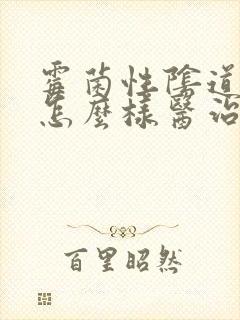 霉菌性陰道
怎麼樣醫治
百里昭然